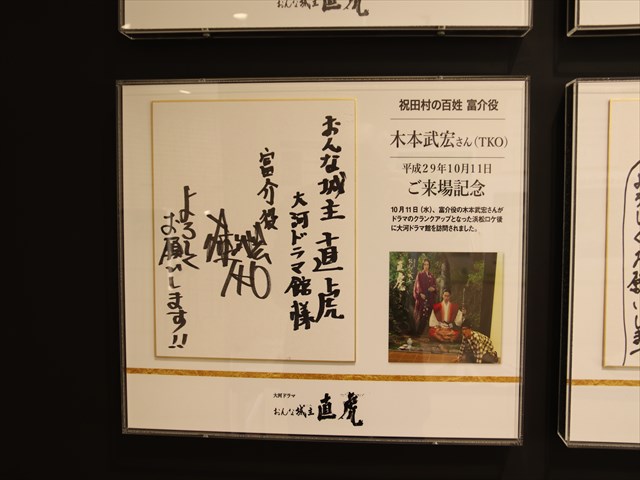 おんな城主 直虎
おんな城主 直虎
大河ドラマ館様
富介役
TKO
よろしく
お願いします!!
祝田村の百姓 富介役
木本武宏さん(TKO)
平成29年10月11日
ご来場記念
10月11日(水)、富介役の木本武宏さんが
ドラマのクランクアップとなった浜松ロケ後
に大河ドラマ館を訪問されました。
大河ドラマ
おんな城主 直虎